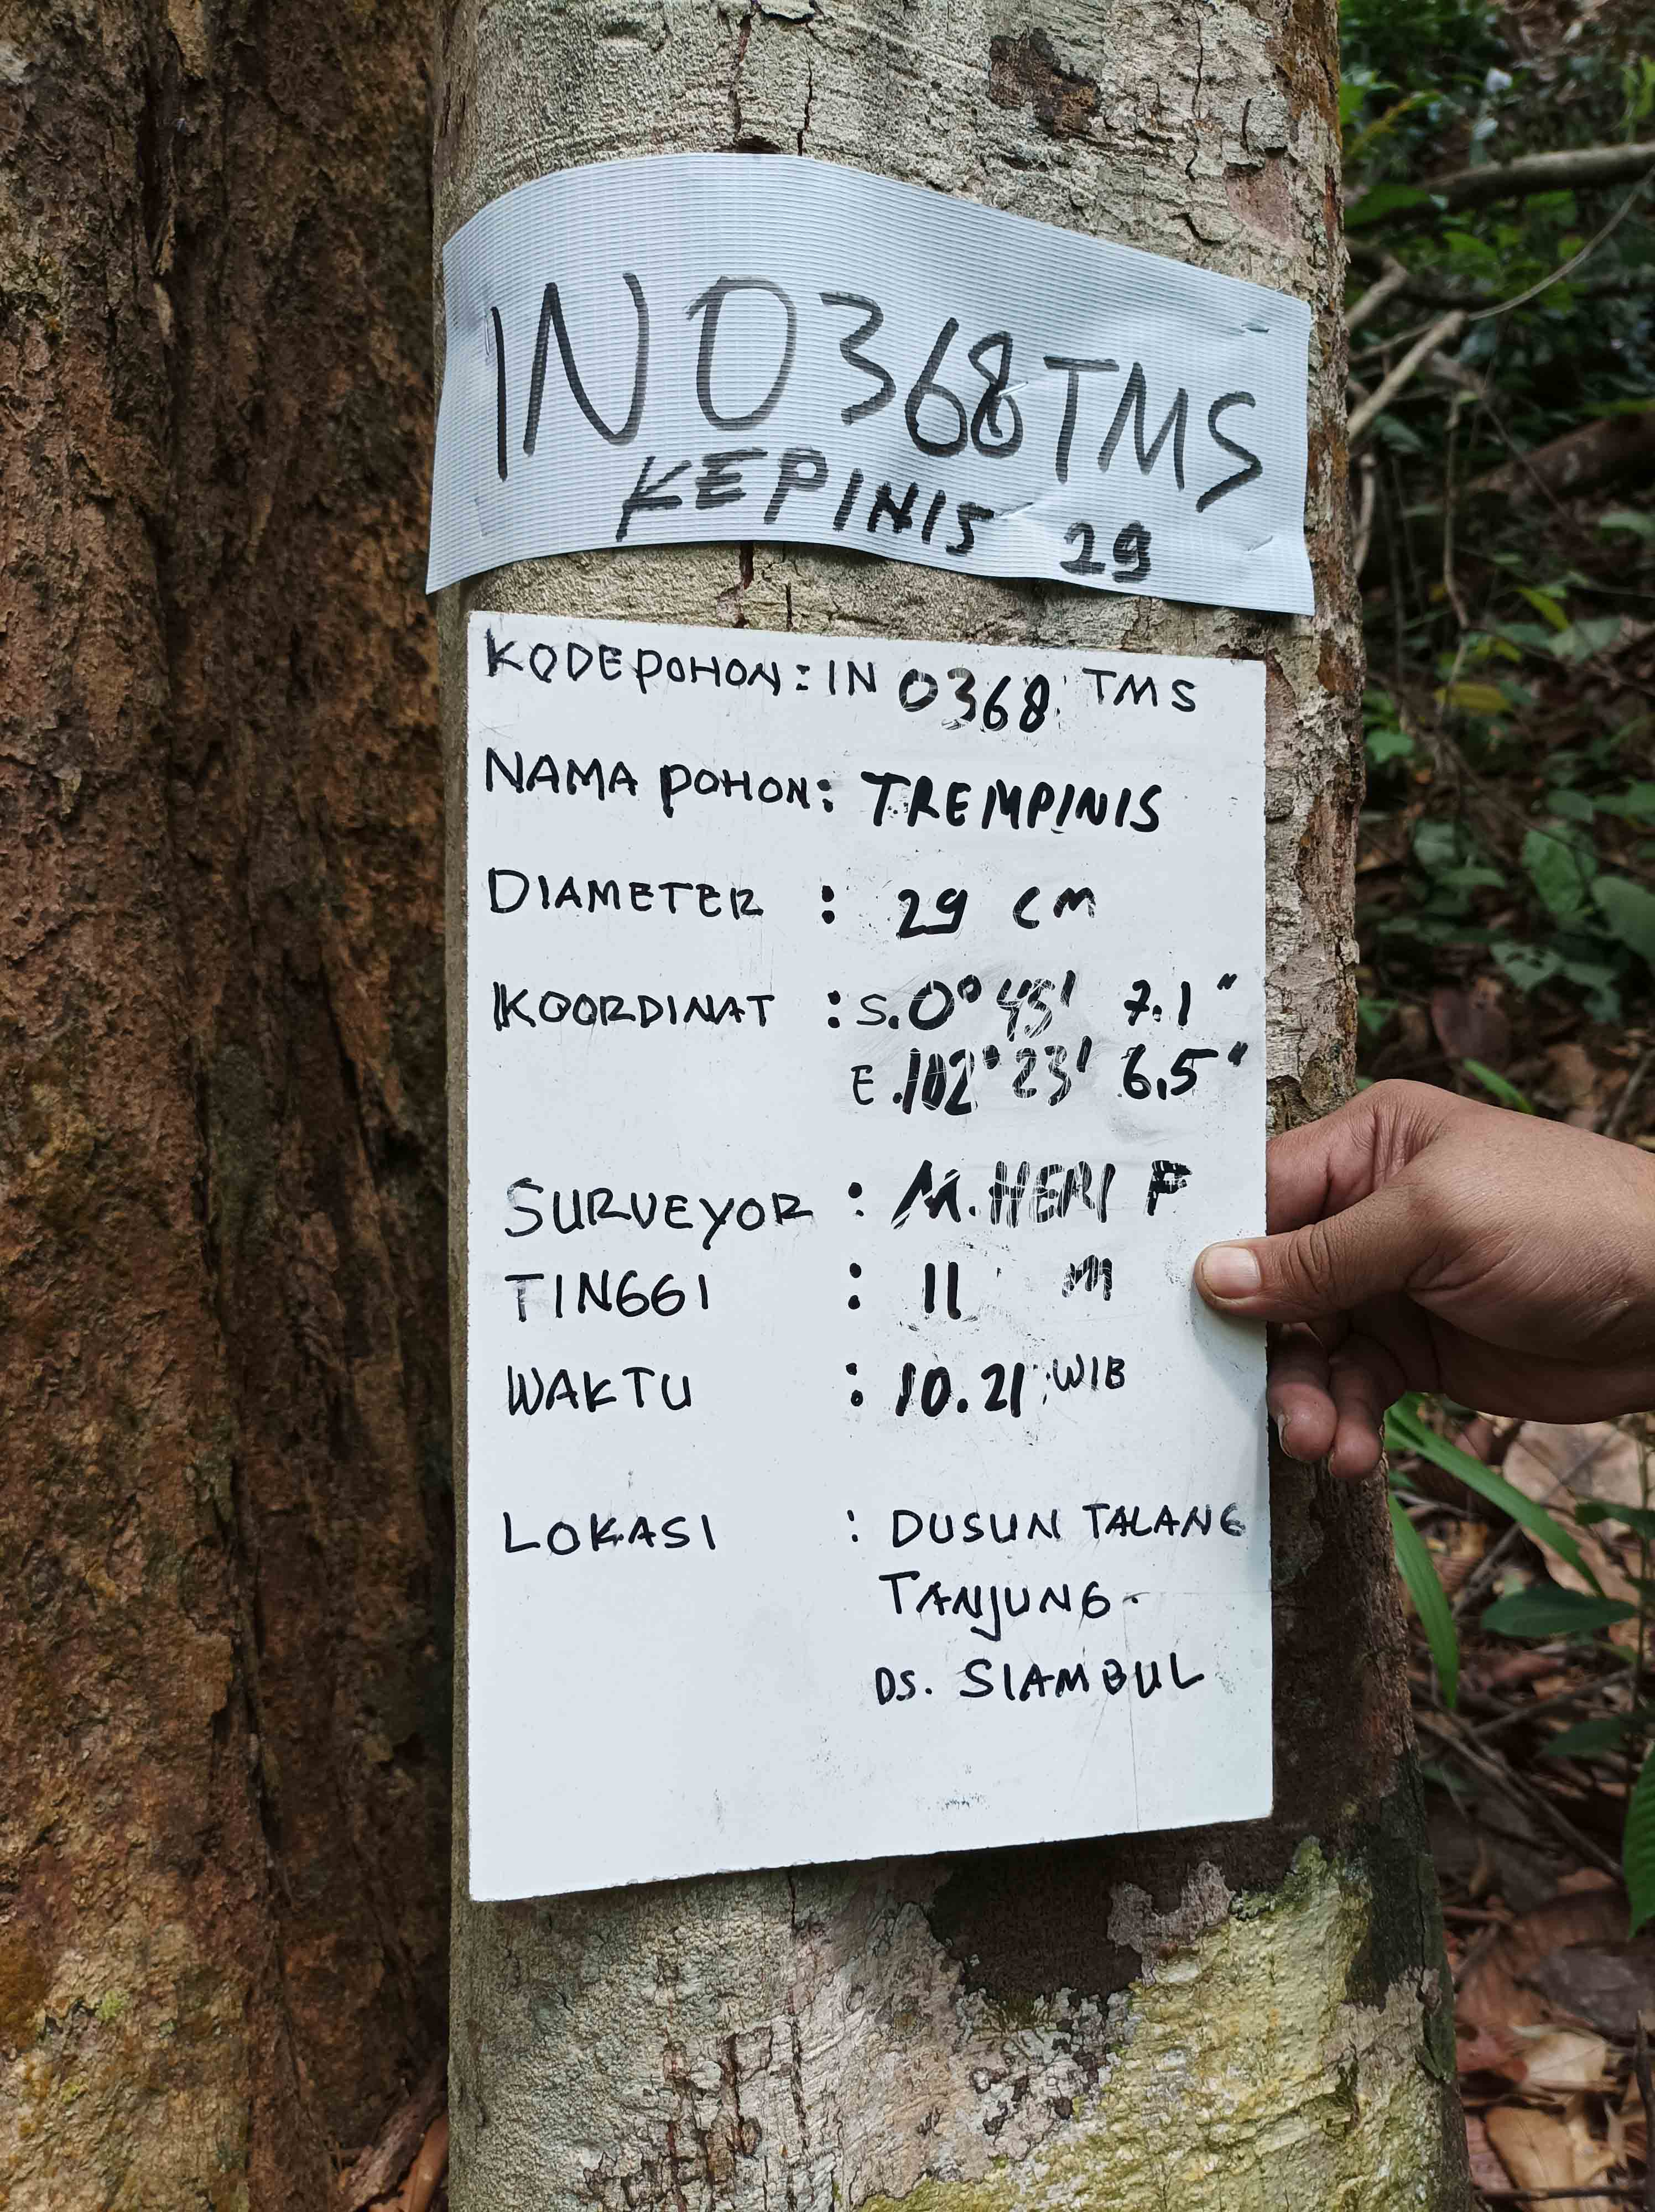 IN0368TMS
KEPINIS 29
KODE POHON : IN 0368 TMS
NAMA POHON : TREMPINIS
DIAMETER : 29 CM
KOORDINAT : S.0° 45' 7.1"
E.102° 23' 6.5"
SURVEYOR : M.HERI P
TINGGI : 11 M
WAKTU : 10.21 WIB
LOKASI : DUSUN TALANG
TANJUNG.
DS. SIAMBUL